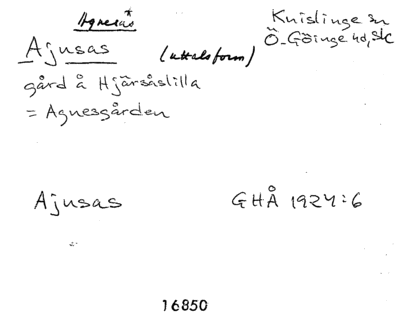 Agnesas*
Knislinge sn
Ajusas (uttalsform)
Ö. Göinge hd, Sk
gård å Hjärsåslilla
= Agnesgården
Ajusas GHÅ 1924:6
16850